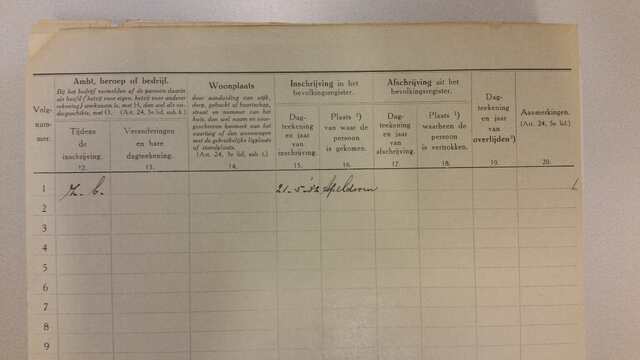 Volg-
num-
mer.
Ambt, beroep of bedrijf.
Bij het bedrijf vermelden of de persoon daarin
als hoofd (hetzij voor eigen, hetzij voor andere
rekening) werkzaam is, met H, dan wel als on-
dergeschikte, met O. (Art. 24, 3e lid, sub k.)
Tijdens
de
inschrijving.
12.
Veranderingen
en hare
dagteekening.
13.
Woonplaats
door aanduiding van wijk,
dorp, gehucht of buurtschap,
straat en nummer van het
huis, dan wel naam en
kenmerk van het
vaartuig of den woonwagen
met de gebruikelijke ligplaats
of standplaats.
(Art. 24, 3e lid, sub l.)
14.
Inschrijving in het
bevolkingsregister.
Dag-
teekening
en jaar
van
inschrijving.
15.
Plaats ¹)
van waar de
persoon
is gekomen.
16.
Afschrijving uit het
bevolkingsregister.
Dag-
teekening
en jaar
van
afschrijving.
17.
Plaats ¹)
waarheen de
persoon
is vertrokken.
18.
Dag-
teekening
en jaar
van
overlijden ²)
19.
Aanmerkingen.
(Art. 24, 5e lid.)
20.
1 z. b. 21-5-'32 Apeldoorn
2
3
4
5
6
7
8
9